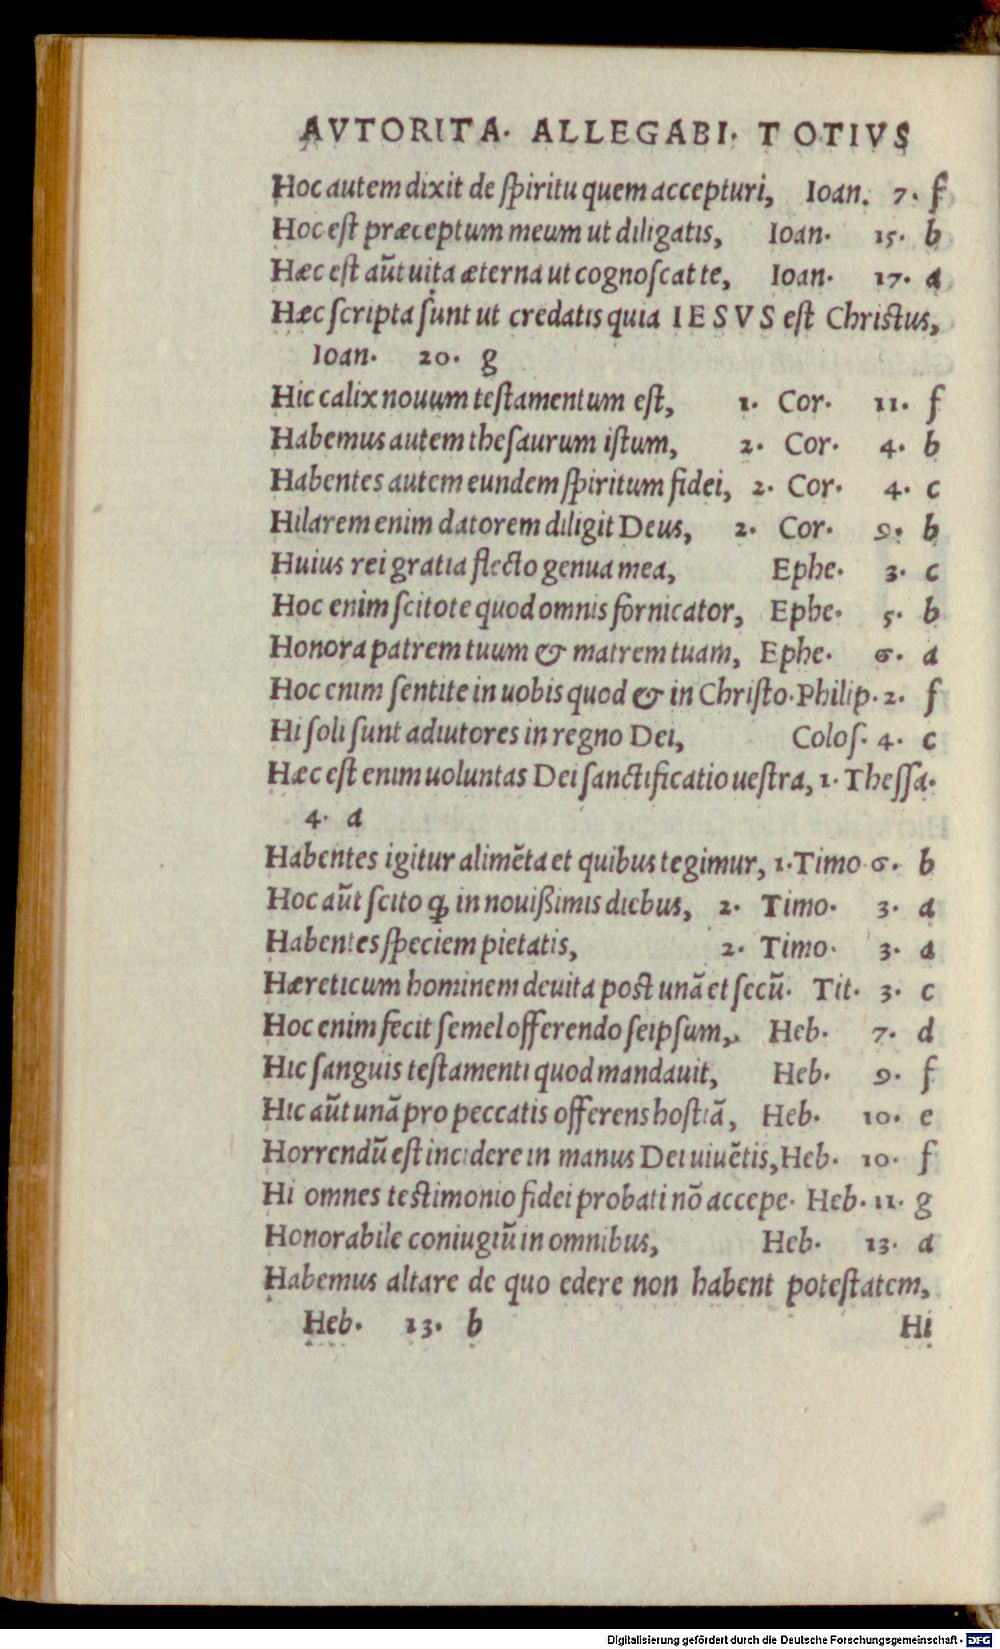 AVTORITA. ALLEGABI. TOTIVS
Hoc autem dixit de ſpiritu quem accepturi, Ioan. 7. f
Hoc eſt præceptum meum ut diligatis, Ioan. 15. b
Hæc eſt aūt uita æterna ut cognoſcat te, Ioan. 17. a
Hæc ſcripta ſunt ut credatis quia IESVS eſt Chriſtus,
Ioan. 20. g
Hic calix nouum teſtamentum eſt, 1. Cor. 11. f
Habemus autem theſaurum iſtum, 2. Cor. 4. b
Habentes autem eundem ſpiritum fidei, 2. Cor. 4. c
Hilarem enim datorem diligit Deus, 2. Cor. 9. b
Huius rei gratia flecto genua mea, Ephe. 3. c
Hoc enim ſcitote quod omnis fornicator, Ephe. 5. b
Honora patrem tuum & matrem tuam, Ephe. 6. a
Hoc enim ſentite in uobis quod & in Chriſto. Philip. 2. f
Hi ſoli ſunt adiutores in regno Dei, Coloſ. 4. c
Hæc eſt enim uoluntas Dei ſanctificatio ueſtra, 1. Theſſa.
4. a
Habentes igitur alimēta et quibus tegimur, 1. Timo 6. b
Hoc aūt ſcito ꝙ in nouißimis diebus, 2. Timo. 3. a
Habentes ſpeciem pietatis, 2. Timo. 3. a
Hæreticum hominem deuita poſt unā et ſecū. Tit. 3. c
Hoc enim fecit ſemel offerendo ſeipſum, Heb. 7. d
Hic ſanguis teſtamenti quod mandauit, Heb. 9. f
Hic aūt unā pro peccatis offerens hoſtiā, Heb. 10. e
Horrendū eſt incidere in manus Dei uiuētis, Heb. 10. f
Hi omnes teſtimonio fidei probati nō accepe. Heb. 11. g
Honorabile coniugiū in omnibus, Heb. 13. a
Habemus altare de quo edere non habent poteſtatem,
Heb. 13. b Hi
Digitalisierung gefördert durch die Deutsche Forschungsgemeinschaft - DFG